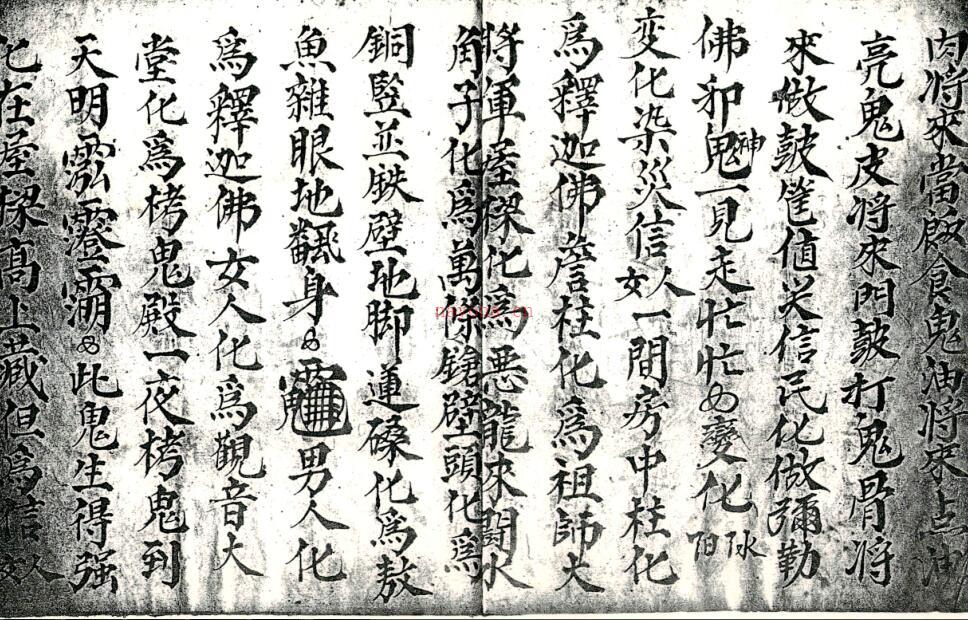 肉將來當飯食鬼油將來点油
亮鬼皮将來門皷打鬼骨将
來做皷篐值关信民化做彌勒
佛邪鬼神一見走忙忙變化
变化染災信女人一間房中柱化
為釋迦佛詹柱化為祖師大
將軍屋樑化為悪龍來鬪水
角子化為萬條鎗壁頭化為
銅竪並鉄壁地脚蓮磉化為敖
魚雜眼地飜身男人化
為釋迦佛女人化為觀音大
堂化為栲鬼殿一夜栲鬼到
天明此鬼生得强
化在屋樑高上藏但為信女人
nayona.cn